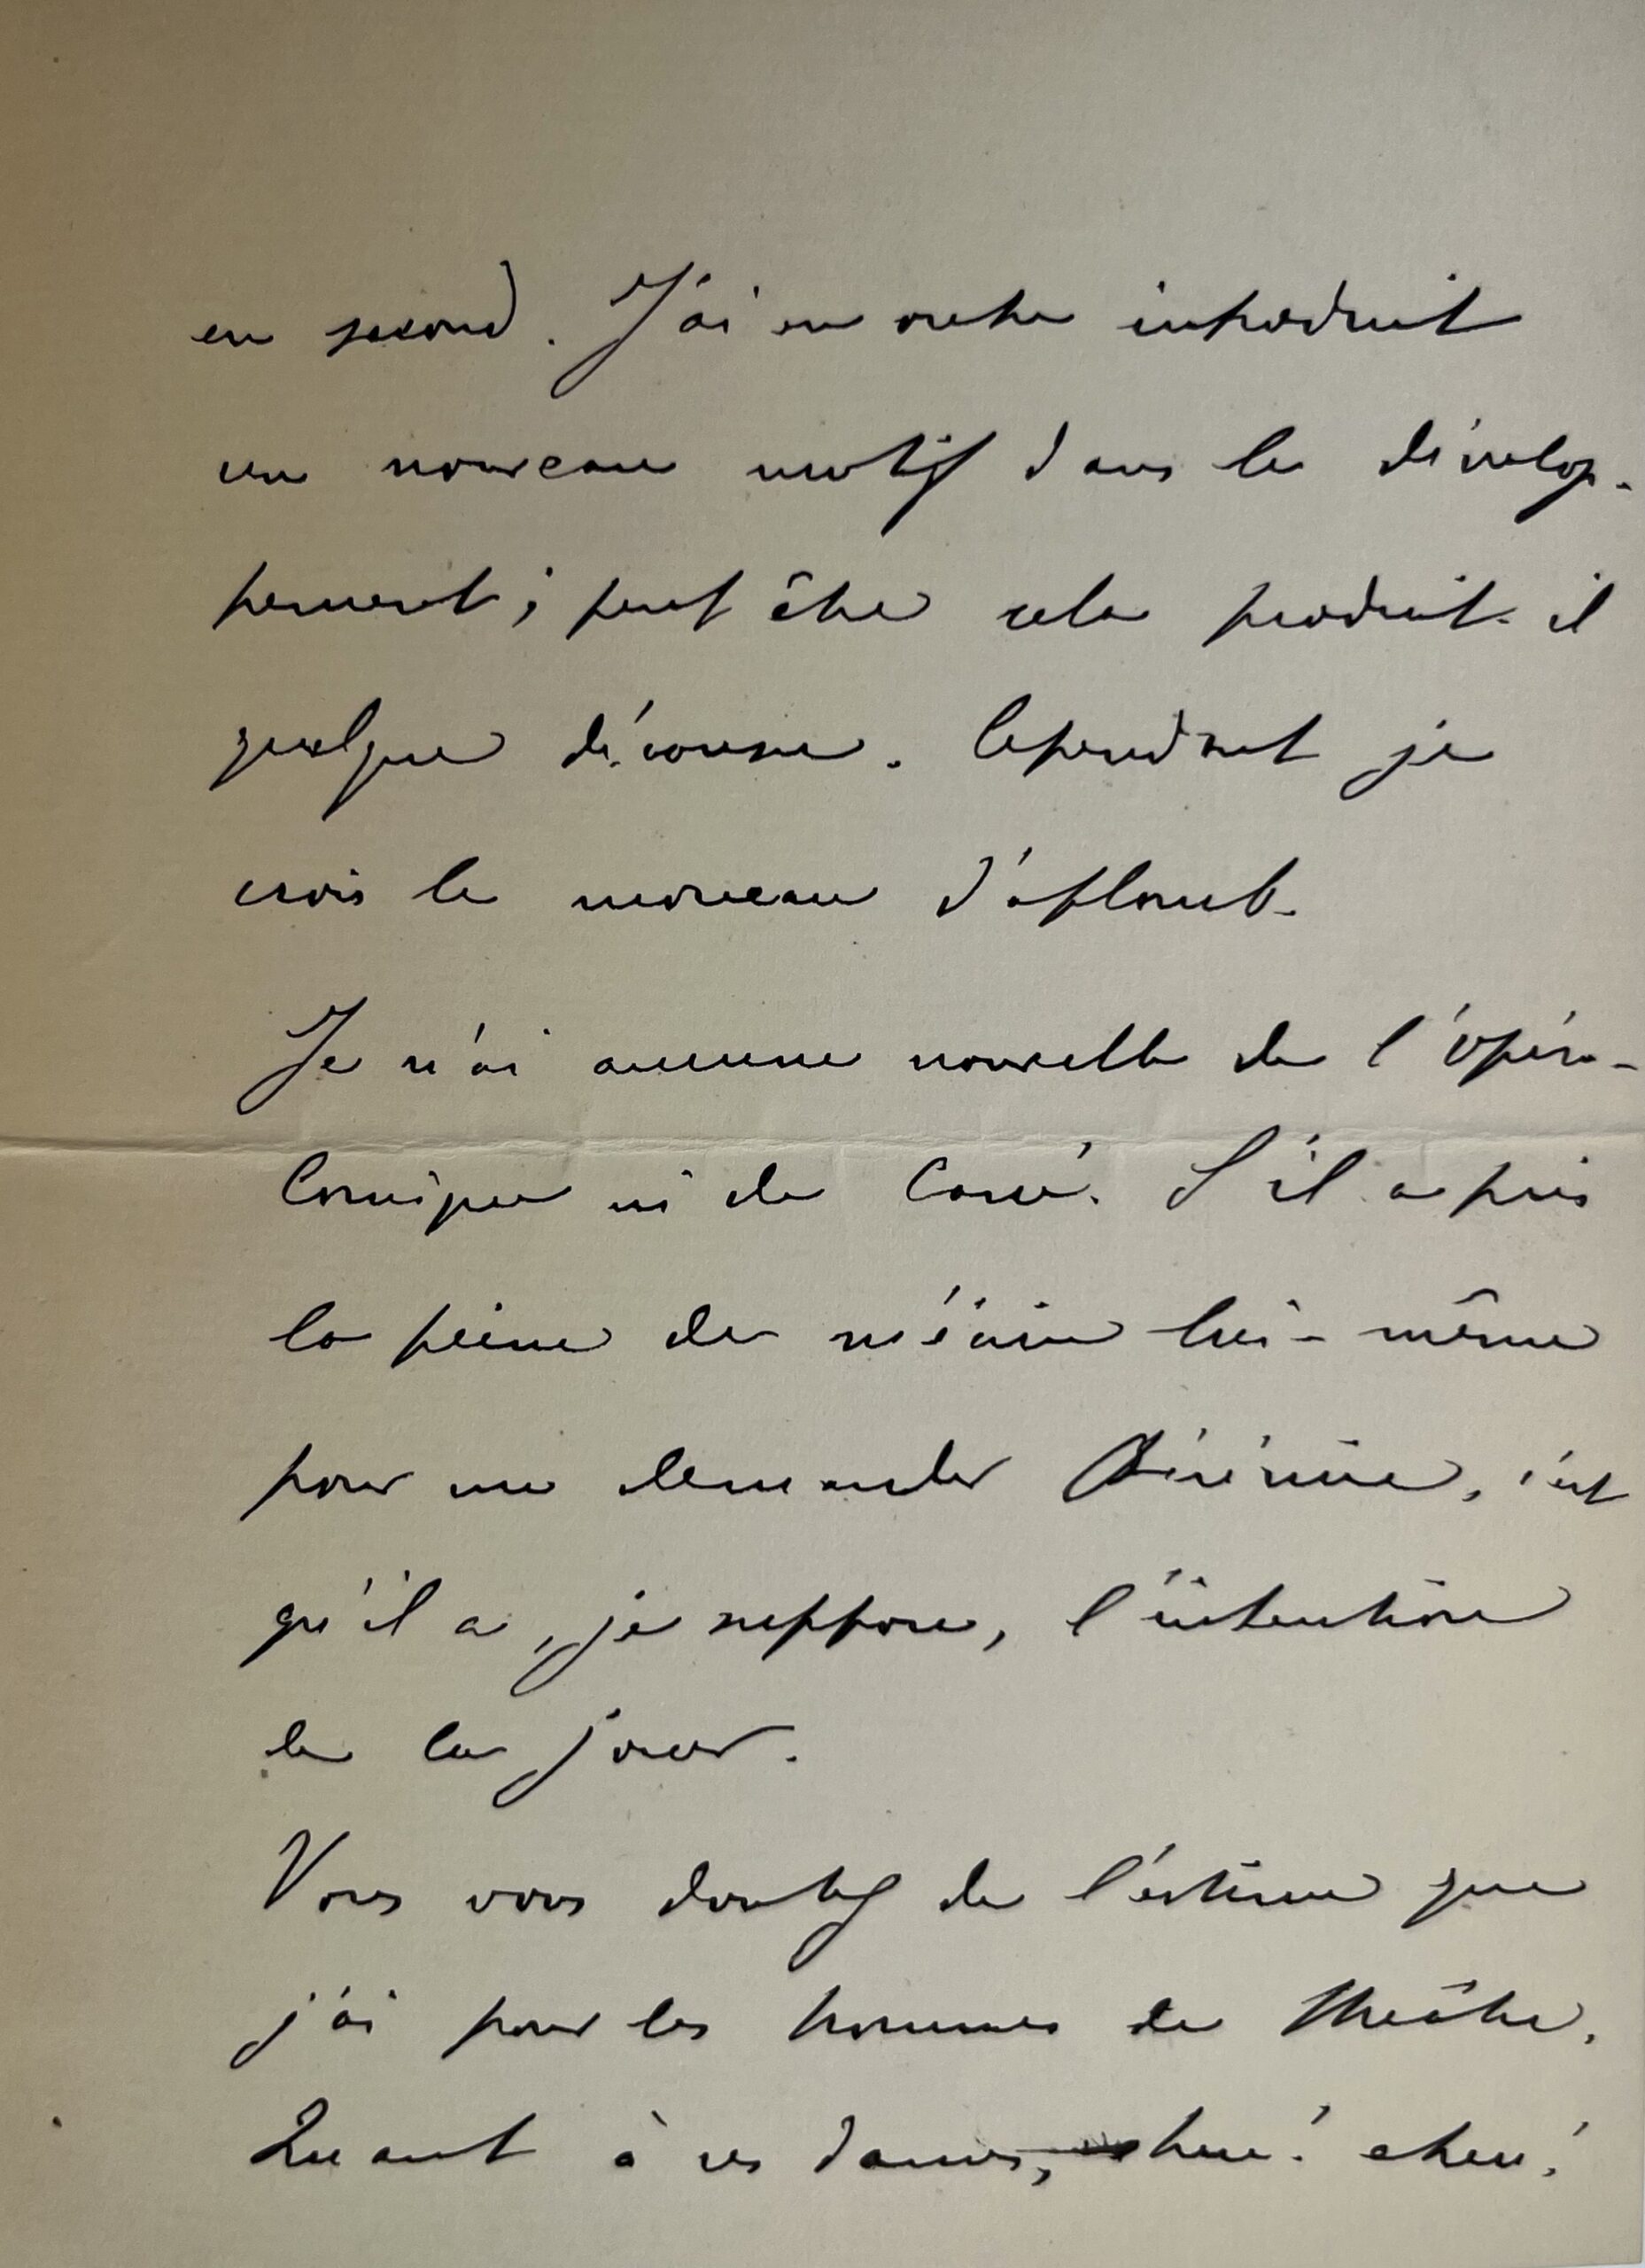 en second. J'ai en outre introduit
un nouveau motif dans le dévelop-
pement ; peut être cela produit-il
quelque décousu. Cependant je
crois le morceau d'aplomb.
Je n'ai aucune nouvelle de l'Opéra-
Comique ni de Carré. S'il a pris
la peine de m'écrire lui-même
pour me demander Bérénice, c'est
qu'il a, je suppose, l'intention
de la jouer.
Vous vous doutez de l'estime que
j'ai pour les hommes de théâtre.
Quant à ces dames, eheu! eheu!